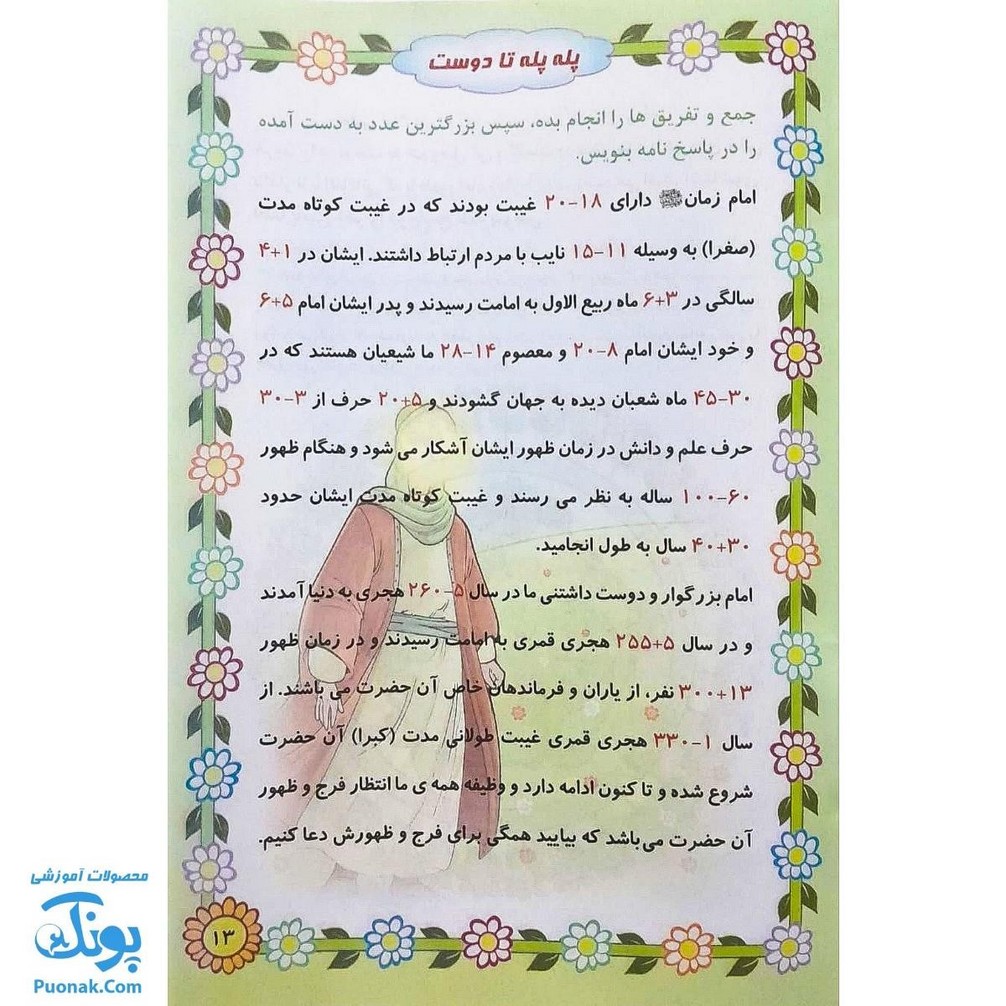 پله پله تا دوست
جمع و تفریق ها را انجام بده، سپس بزرگترین عدد به دست آمده
را در پاسخ نامه بنویس.
امام زمان دارای ۱۸-۲۰ غیبت بودند که در غیبت کوتاه مدت
(صغرا) به وسیله ۱۱-۱۵ نایب با مردم ارتباط داشتند. ایشان در ۱+۴
سالگی در ۳+۶ ماه ربیع الاول به امامت رسیدند و پدر ایشان امام ۵+۶
و خود ایشان امام ۸-۲۰ و معصوم ۱۴-۲۸ ما شیعیان هستند که در
۳۰-۴۵ ماه شعبان دیده به جهان گشودند و ۵+۲۰ حرف از ۳-۳۰
حرف علم و دانش در زمان ظهور ایشان آشکار می شود و هنگام ظهور
۶۰-۱۰۰ ساله به نظر می رسند و غیبت کوتاه مدت ایشان حدود
۳۰+۴۰ سال به طول انجامید.
امام بزرگوار و دوست داشتنی ما در سال ۵-۲۶۰ هجری به دنیا آمدند
و در سال ۵+۲۵۵ هجری قمری به امامت رسیدند و در زمان ظهور
۱۳+۳۰۰ نفر، از یاران و فرماندهان خاص آن حضرت می باشند. از
سال ۱-۳۳۰ هجری قمری غیبت طولانی مدت (کبرا) آن حضرت
شروع شده و تا کنون ادامه دارد و وظیفه همه ی ما انتظار فرج و ظهور
آن حضرت می باشد که بیایید همگی برای فرج و ظهورش دعا کنیم.
۱۳
محصولات آموزشی
پونک
Puonak.Com